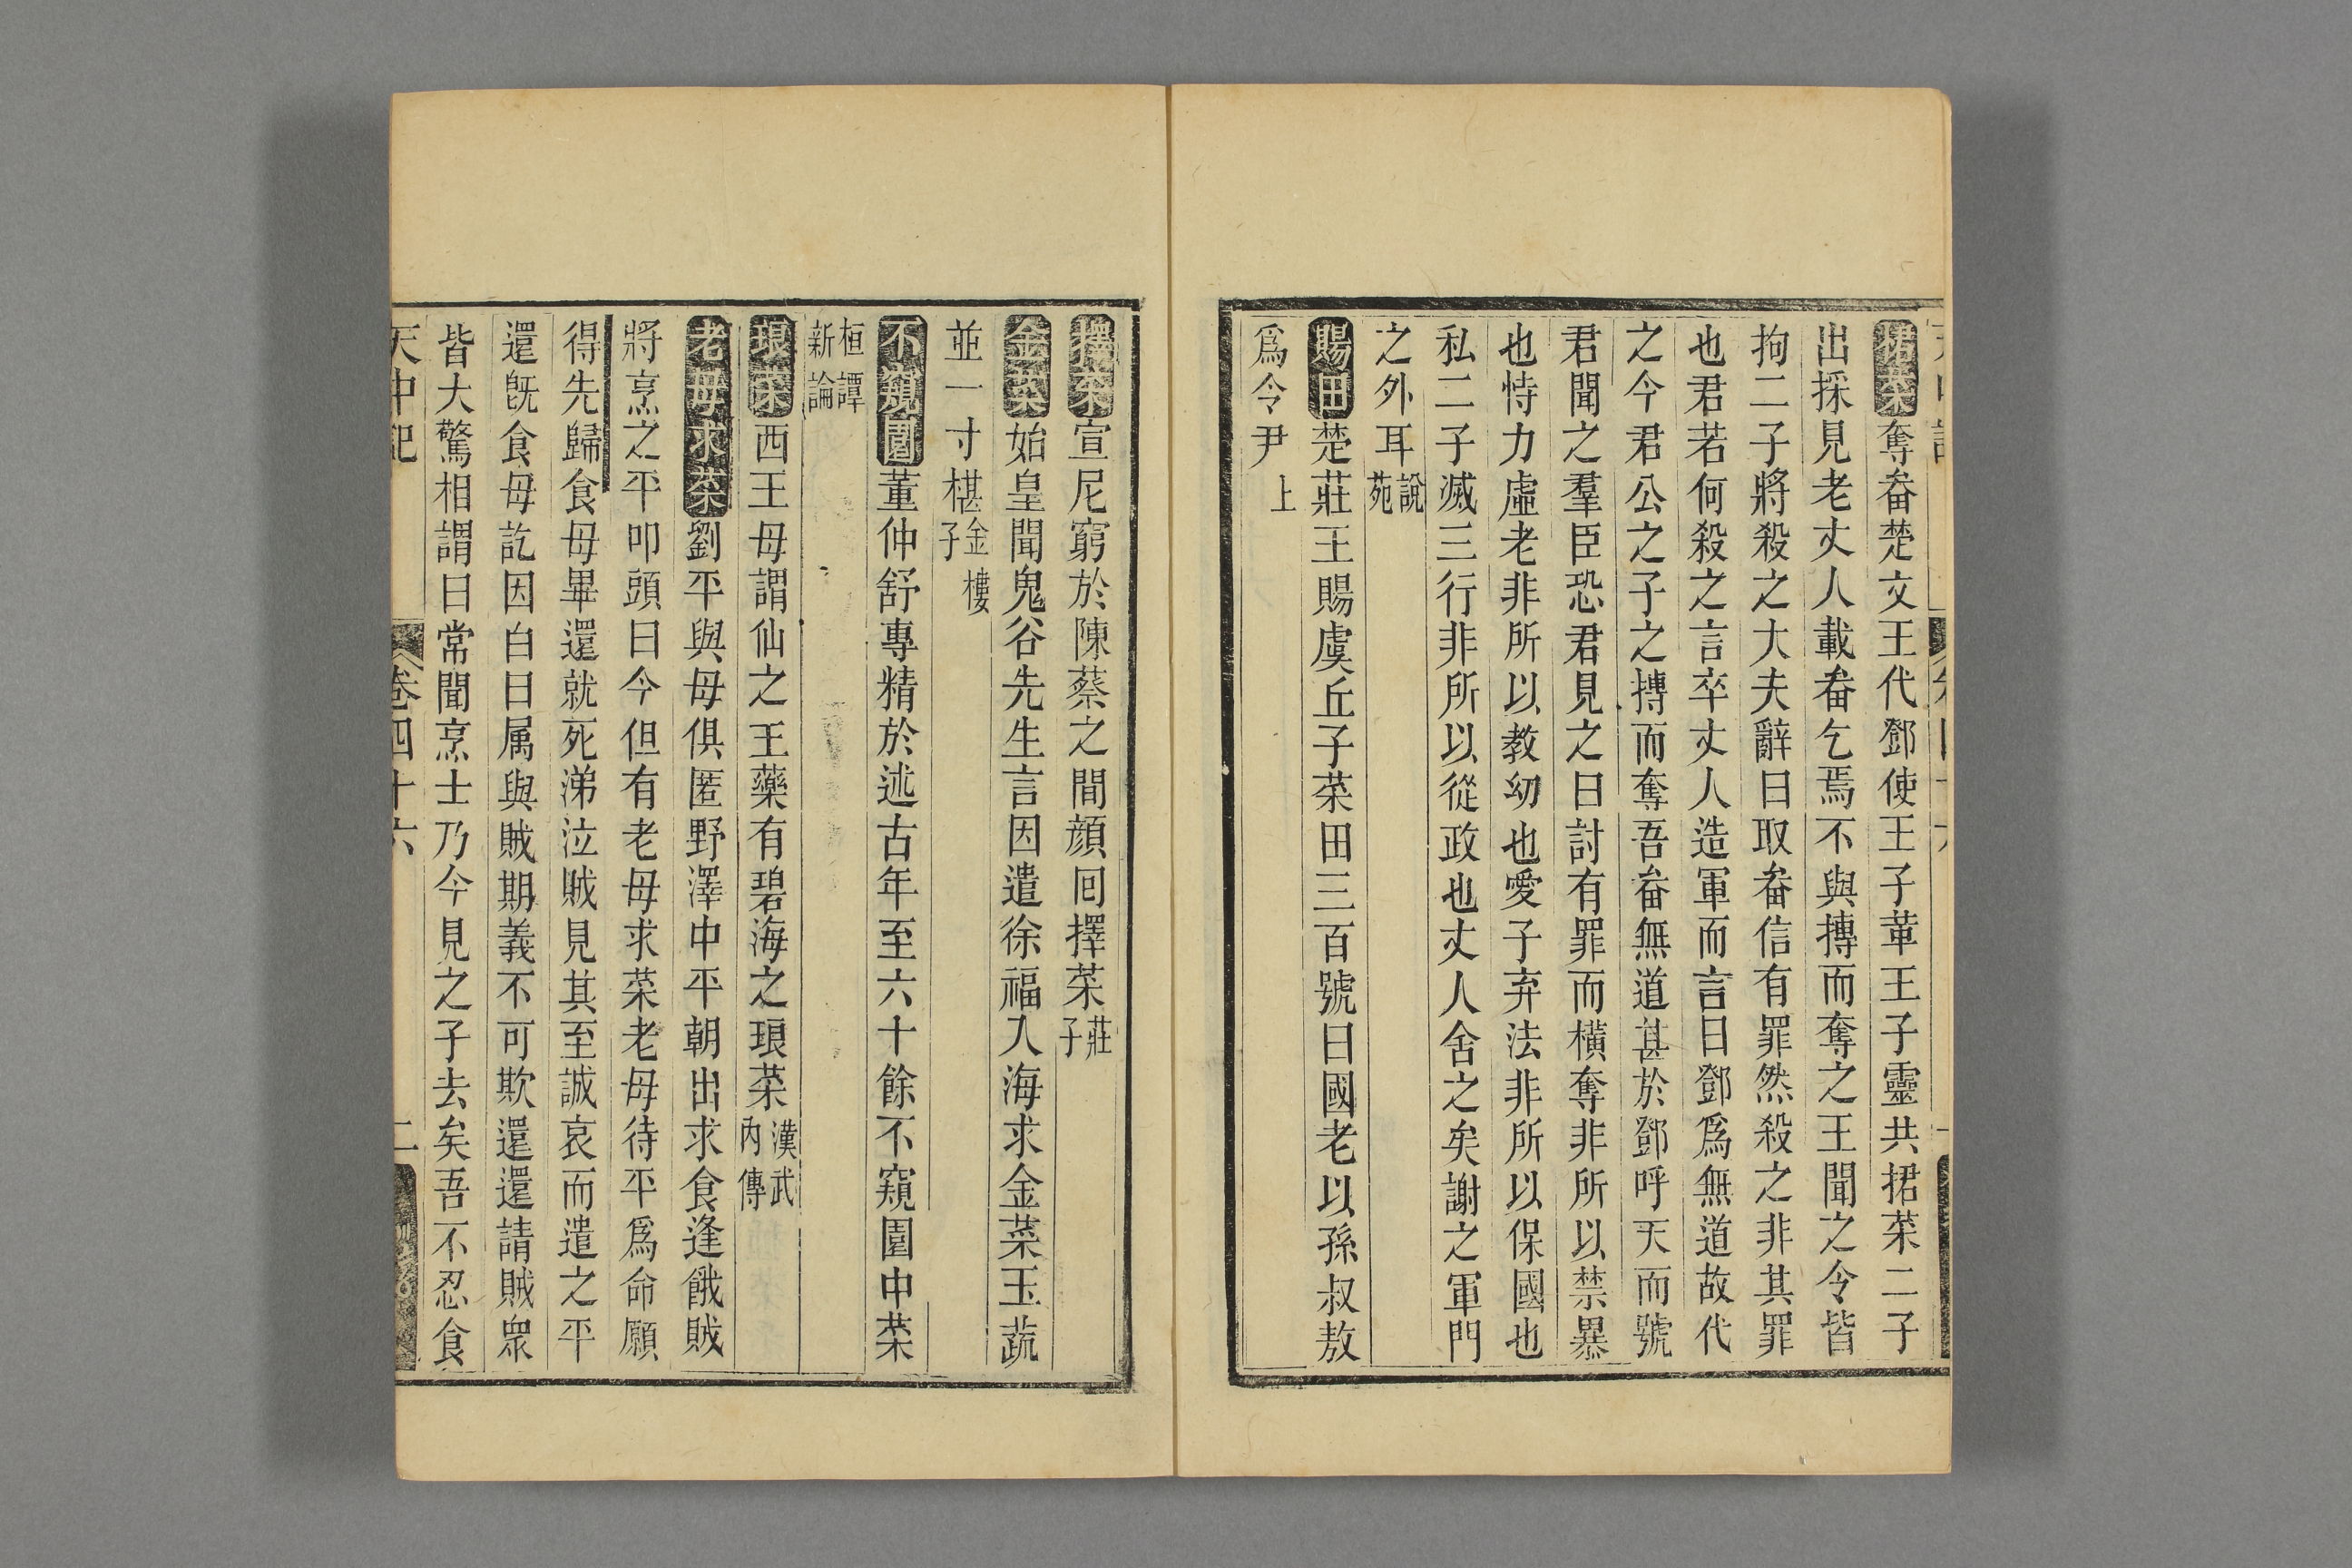 捃菜奪畚楚文王代鄧使王子葷王子靈共捃菜二子
出採見老丈人載畚乞焉不與搏而奪之王聞之令皆
拘二子將殺之大夫辭曰取畚信有罪然殺之非其罪
也君若何殺之言卒丈人造軍而言曰鄧爲無道故代
之今君公之子之摶而奪吾畚無道甚於鄧呼天而號
君聞之羣臣恐君見之曰討有罪而橫奪非所以禁暴
也恃力虛老非所以教幼也愛子弃法非所以保國也
私二子滅三行非所以從政也丈人舍之矣謝之軍門
之外耳說苑
賜田楚莊王賜虞丘子菜田三百號曰國老以孫叔敖
爲令尹上
擇菜宣尼窮於陳蔡之間顔囘擇菜莊子
金菜始皇聞鬼谷先生言因遣徐福入海求金菜玉蔬
並一寸椹金樓子
不窺園董仲舒專精於述古年至六十餘不窺園中菜
桓譚新論
琅菜西王母謂仙之王藥有碧海之琅菜漢武內傳
老母求菜劉平與母俱匿野澤中平朝出求食逢餓賊
將烹之平叩頭曰今但有老母求菜老母待平爲命願
得先歸食母畢還就死涕泣賊見其至誠哀而遣之平
還旣食母訖因白曰属與賊期義不可欺還還請賊眾
皆大驚相謂曰常聞烹士乃今見之子去矣吾不忍食
天中記 卷四十六 二